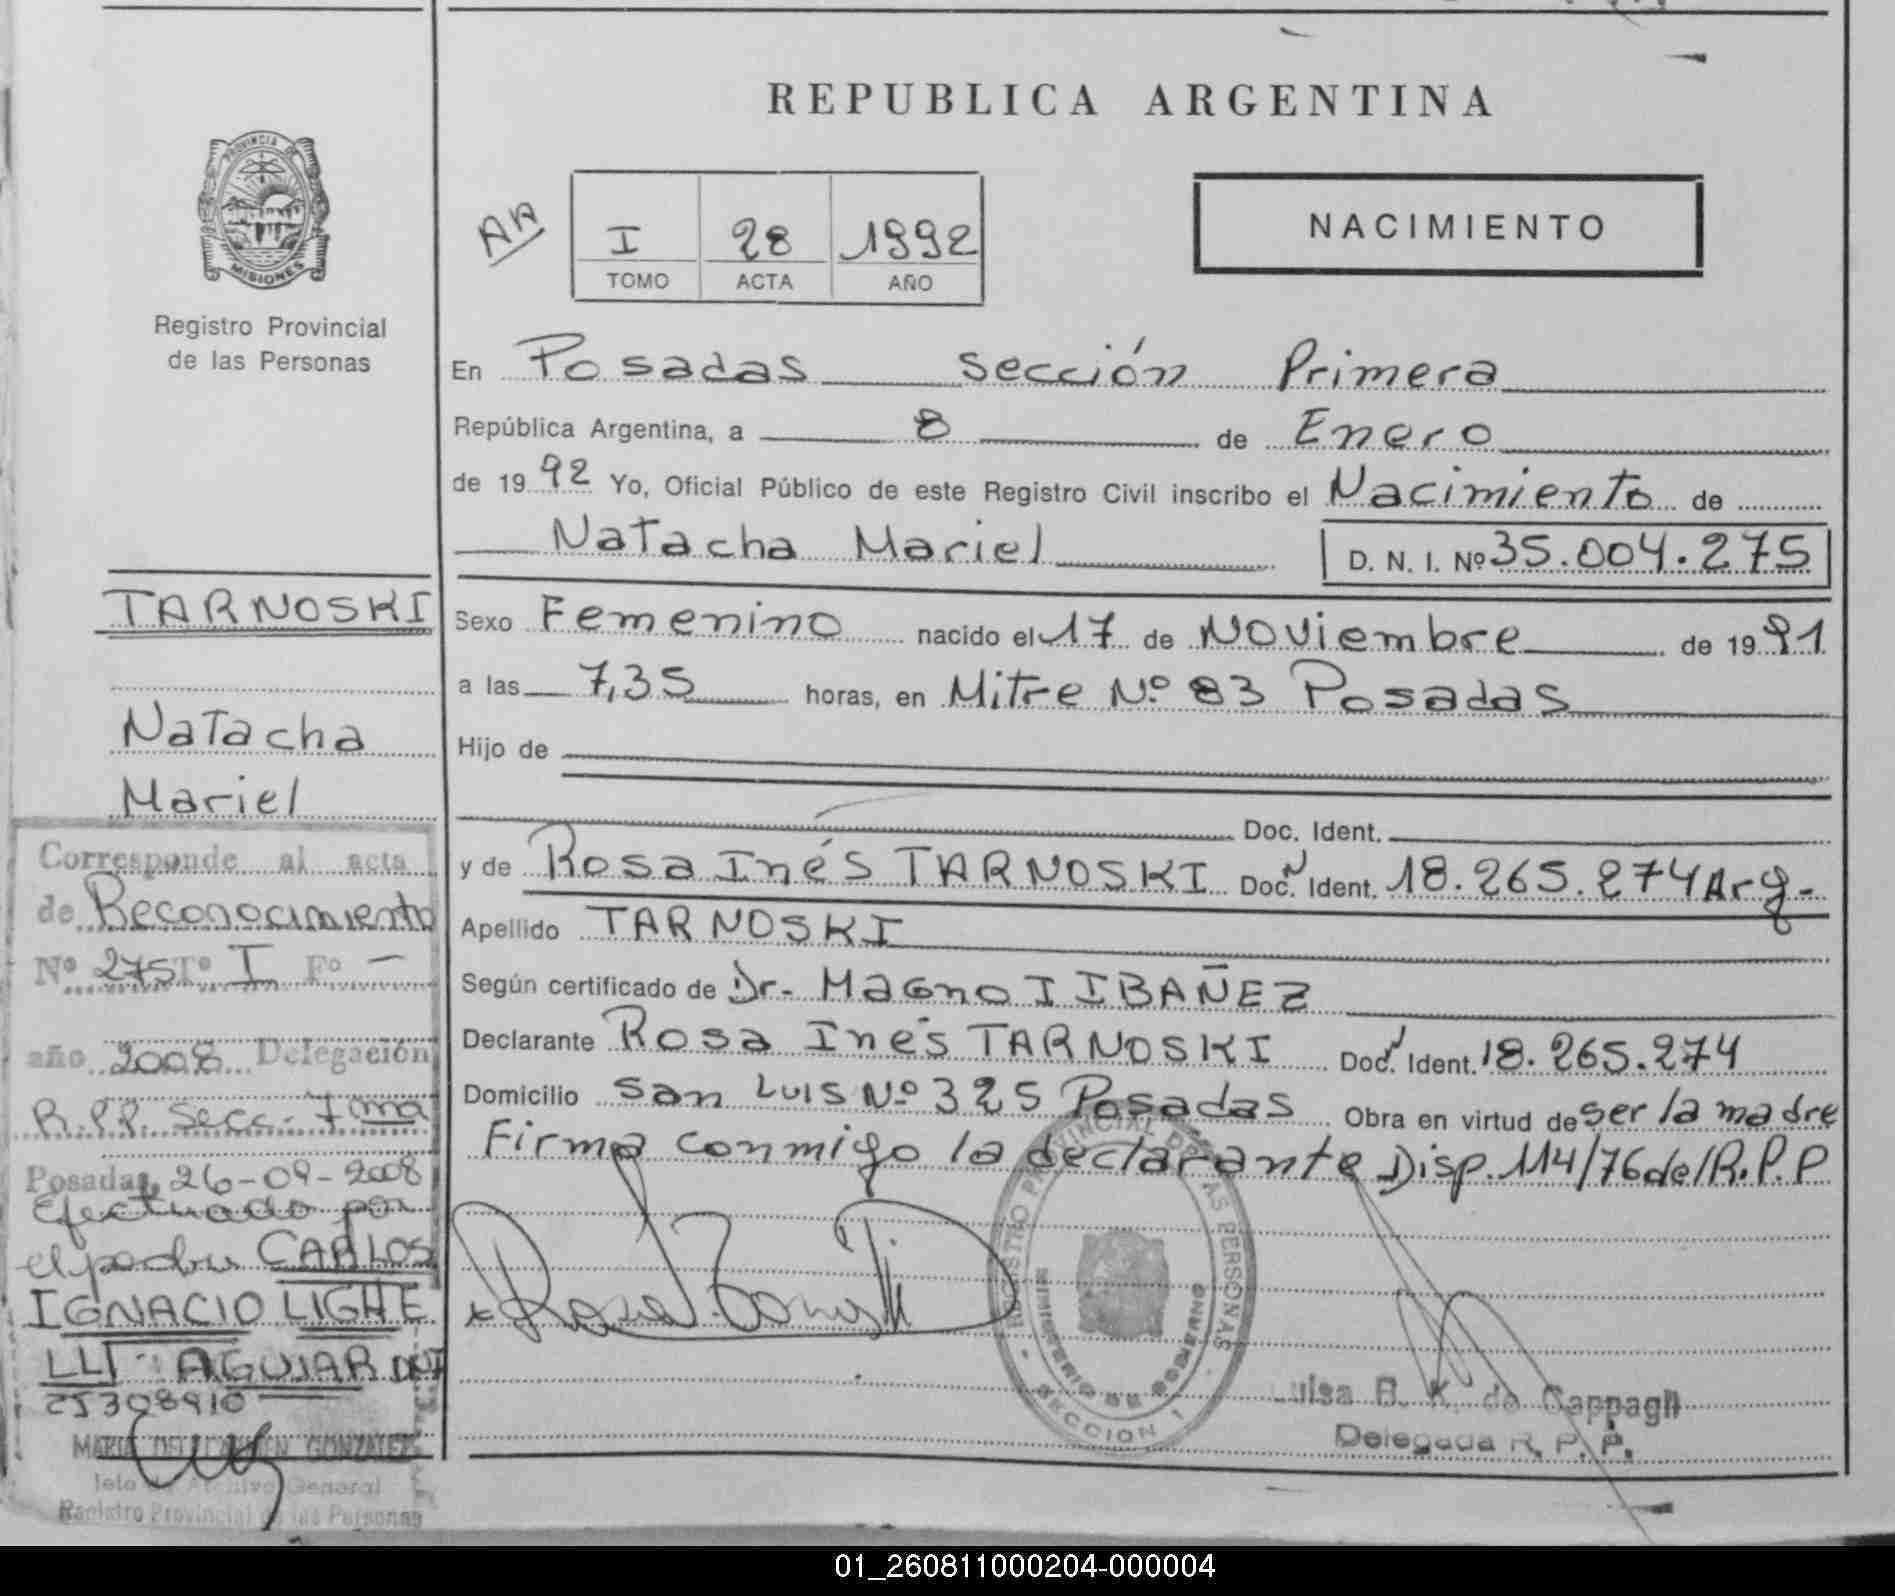 REPUBLICA ARGENTINA
PROVINCIA DE
MISIONES
Registro Provincial
de las Personas
AA
I 28 1992
TOMO ACTA AÑO
NACIMIENTO
En Posadas sección Primera
República Argentina, a 8 de Enero
de 1992 Yo, Oficial Público de este Registro Civil inscribo el Nacimiento de
Natacha Mariel D. N. I. Nº 35.004.275
Sexo Femenino nacido el 17 de Noviembre de 1991
a las 7,35 horas, en Mitre Nº 83 Posadas
Hijo de
Doc. Ident.
y de Rosa Inés TARNOSKI Doc. Ident. 18.265.274 Arg-
Apellido TARNOSKI
Según certificado de Dr. Magno I IBAÑEZ
Declarante Rosa Inés TARNOSKI Doc. Ident. 18.265.274
Domicilio San Luis Nº 325 Posadas Obra en virtud de ser la madre
Firma conmigo la declarante Disp. 114/76 del R.P.P
REGISTRO PROVINCIAL DE LAS PERSONAS
MINISTERIO DE GOBIERNO
SECCION 1
Luisa B. K. de Cappagli
Delegada R. P. P.
TARNOSKI
Natacha
Mariel
Corresponde al acta
de Reconocimiento
Nº 275 Tº I Fº -
año 2008 Delegación
R.P.P. Secc. 7ma
Posadas, 26-09-2008
Efectuado por
el padre CARLOS
IGNACIO LIGHE
AGUIAR DNI
25308910
MARIA DEL CARMEN GONZALEZ
Jefe de Archivo General
Registro Provincial de las Personas
01_260811000204-000004